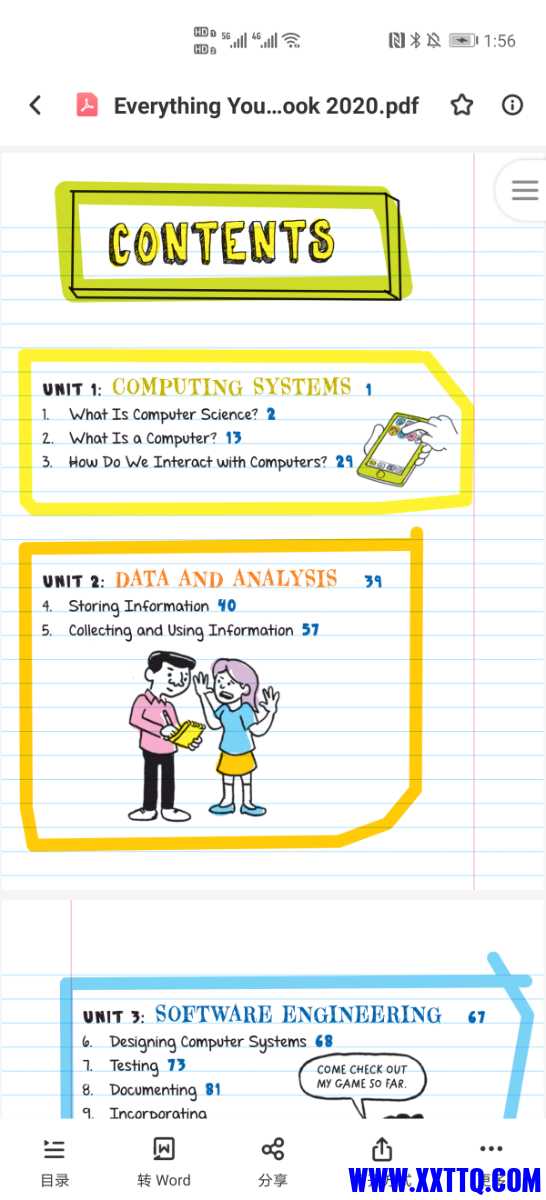 HD 1 5G 4G 1:56
HD 2
Everything You...ook 2020.pdf
CONTENTS
UNIT 1: COMPUTING SYSTEMS 1
1. What Is Computer Science? 2
2. What Is a Computer? 13
3. How Do We Interact with Computers? 29
UNIT 2: DATA AND ANALYSIS 39
4. Storing Information 40
5. Collecting and Using Information 57
UNIT 3: SOFTWARE ENGINEERING 67
6. Designing Computer Systems 68
7. Testing 73
8. Documenting 81
9. Incorporating
COME CHECK OUT
MY GAME SO FAR.
目录 转 Word 分享
WWW.XXTTQ.COM